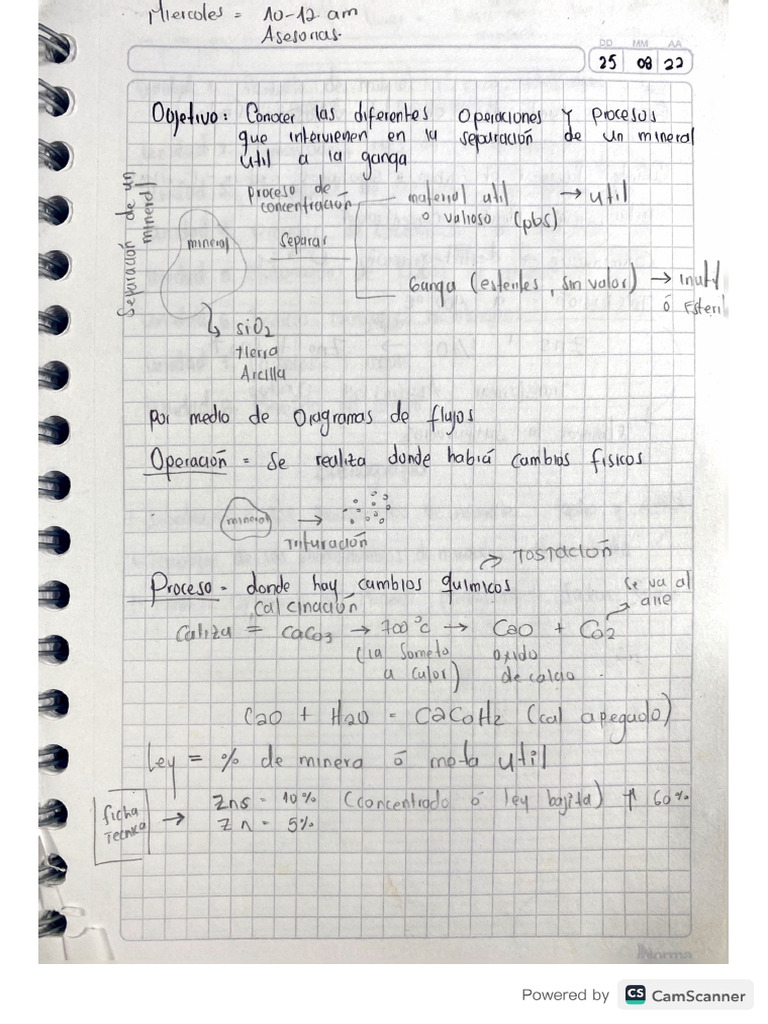 Miercoles = 10-12 am
Asesorias.
DD MM AA
25 08 22
Objetivo: Conocer las diferentes operaciones y procesos
que intervienen en la separación de un mineral
util a la ganga
Separación de un
mineral
proceso de
concentración
material util → util
o valioso (pbs)
mineral
separar
Ganga (esteriles, sin valor) → inutil
ó Esteril
SiO2
tierra
Arcilla
por medio de Diagramas de flujos
Operación = se realiza donde habrá cambios fisicos
mineral →
Trituración
→ TOSTACIÓN
Proceso = donde hay cambios quimicos
calcinación
se va al
aire
Caliza = CaCO3 → 700°c → CaO + CO2
(la someto oxido
a calor) de calcio
CaO + H2O = CaCOH2 (cal apegado)
Ley = % de minera ó meta util
ficha
Tecnica
→ Zns = 10% (concentrado ó ley bajita) ↑ 60%
Zn = 5%
Norma
Powered by CS CamScanner